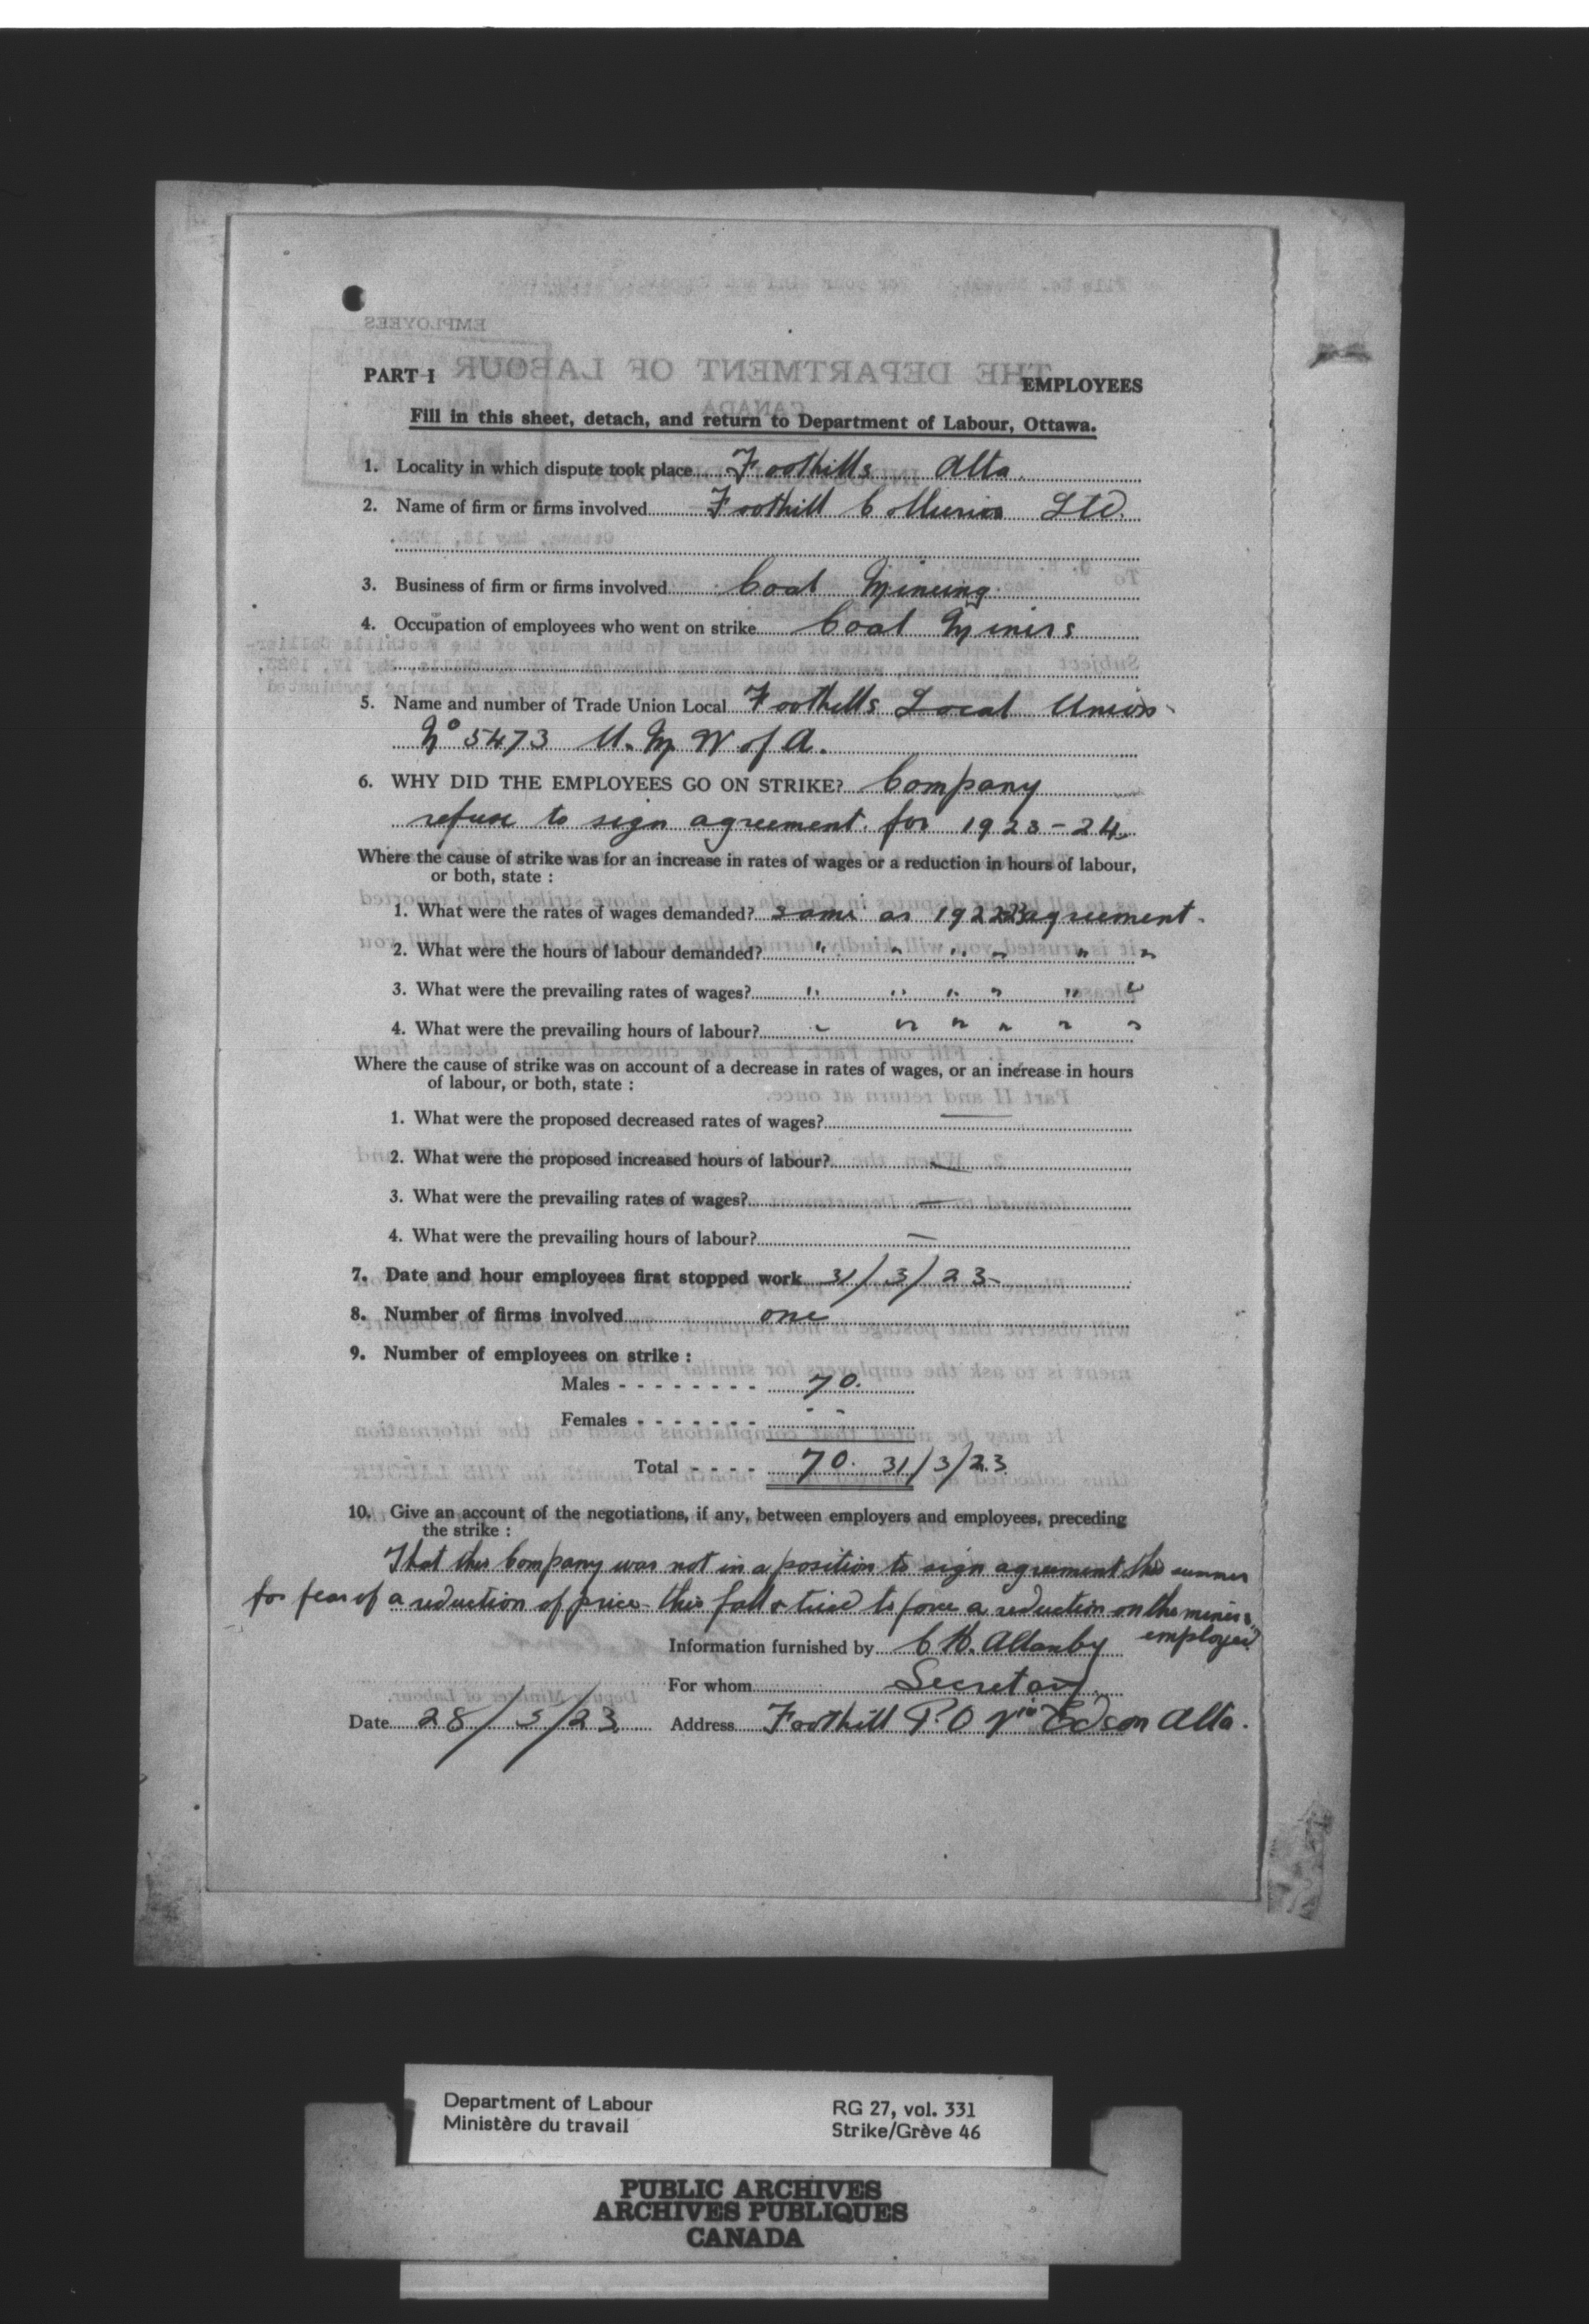 PART I
EMPLOYEES
Fill in this sheet, detach, and return to Department of Labour, Ottawa.
1. Locality in which dispute took place Foothills Alta.
2. Name of firm or firms involved Foothill Collieries Ltd.
3. Business of firm or firms involved Coal Mining
4. Occupation of employees who went on strike Coal Miners
5. Name and number of Trade Union Local Foothills Local Union
No 5473 U. M W of A.
6. WHY DID THE EMPLOYEES GO ON STRIKE? Company
refuse to sign agreement for 1923-24
Where the cause of strike was for an increase in rates of wages or a reduction in hours of labour,
or both, state :
1. What were the rates of wages demanded? same as 1922 agreement.
2. What were the hours of labour demanded? " " " " " "
3. What were the prevailing rates of wages? " " " " " "
4. What were the prevailing hours of labour? " " " " " "
Where the cause of strike was on account of a decrease in rates of wages, or an increase in hours
of labour, or both, state :
1. What were the proposed decreased rates of wages? —
2. What were the proposed increased hours of labour? —
3. What were the prevailing rates of wages? —
4. What were the prevailing hours of labour? —
7. Date and hour employees first stopped work 31/3/23
8. Number of firms involved one
9. Number of employees on strike :
Males - - - - - - - - 70.
Females - - - - - - - - -
Total - - - - 70. 31/3/23
10. Give an account of the negotiations, if any, between employers and employees, preceding
the strike :
That this Company was not in a position to sign agreement this summer
for fear of a reduction of price this fall & tried to force a reduction on the miners
employed
Information furnished by C H. Allanby
For whom Secretary
Date 28/5/23 Address Foothill P.O via Edson Alta.
Department of Labour
Ministère du travail
RG 27, vol. 331
Strike/Grève 46
PUBLIC ARCHIVES
ARCHIVES PUBLIQUES
CANADA